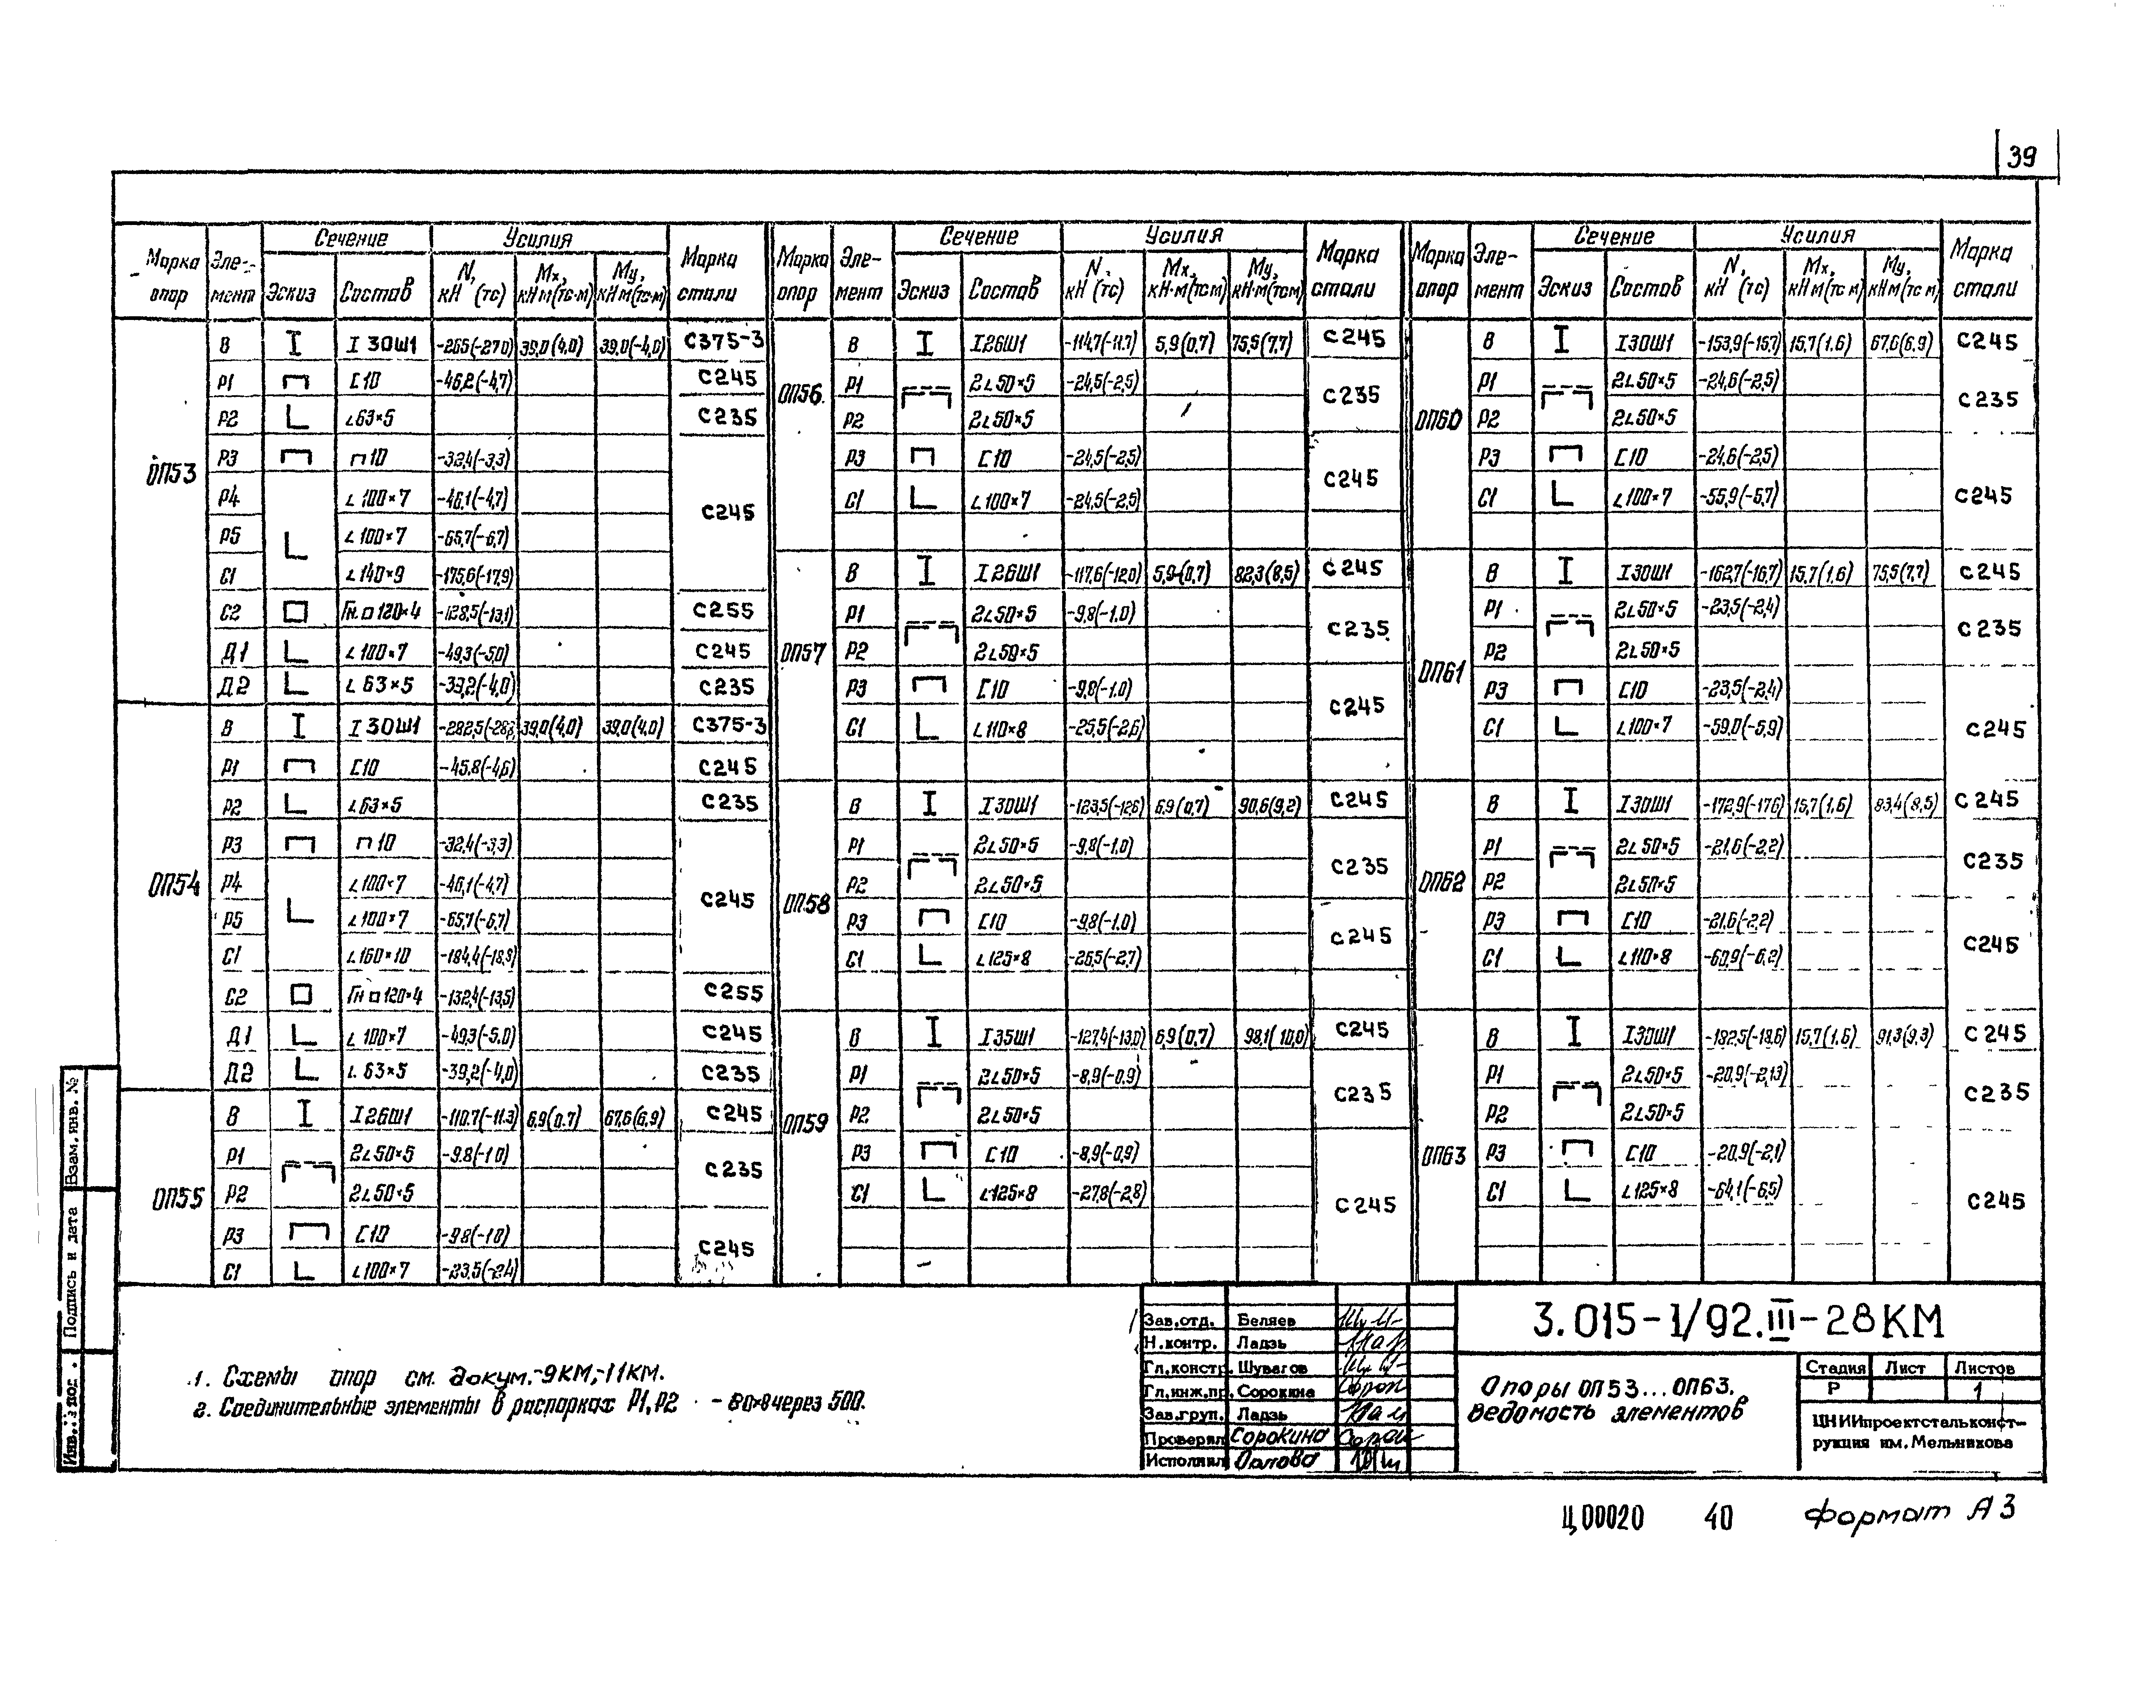 39
Марка опор Эле-мент Сечение Усилия Марка стали
Эскиз Состав N, кН (тс) Mx, кН м(тс·м) My, кН м(тс·м)
ОП53
В I 30Ш1 -265(-27.0) 39,0(4,0) 39,0(-4,0) С375-3
Р1 [10 -46,2(-4,7) С245
Р2 L63×5 С235
Р3 П10 -32,4(-3,3)
Р4 L100×7 -46,1(-4,7) С245
Р5 L100×7 -65,7(-6,7)
С1 L140×9 -175,6(-17,9)
С2 Гн.□120×4 -128,5(-13,1) С255
Д1 L100×7 -49,3(-5,0) С245
Д2 L63×5 -39,2(-4,0) С235
ОП54
В I 30Ш1 -282,5(-28,8) 39,0(4,0) 39,0(4,0) С375-3
Р1 [10 -45,8(-4,6) С245
Р2 L63×5 С235
Р3 П10 -32,4(-3,3)
Р4 L100×7 -46,1(-4,7) С245
Р5 L100×7 -65,7(-6,7)
С1 L160×10 -184,4(-18,8)
С2 Гн□120×4 -132,4(-13,5) С255
Д1 L100×7 -49,3(-5.0) С245
Д2 L63×5 -39,2(-4,0) С235
ОП55
В I26Ш1 -110.7(-11.3) 6,9(0.7) 67,6(6,9) С245
Р1 2L50×5 -9.8(-1 0) С235
Р2 2L50×5
Р3 [10 -9.8(-1 0) С245
С1 L100×7 -23,5(-2.4)
Марка опор Эле-мент Сечение Усилия Марка стали
Эскиз Состав N, кН (тс) Mx, кН·м(тсм) My, кН·м(тсм)
ОП56
В I26Ш1 -114,7(-11.7) 5,9(0,7) 75,5(7,7) С245
Р1 2L50×5 -24,5(-2,5) С235
Р2 2L50×5
Р3 [10 -24,5(-2,5) С245
С1 L100×7 -24,5(-2,5)
ОП57
В I26Ш1 -117,6(-12.0) 5,9(0,7) 82,3(8,5) С245
Р1 2L50×5 -9,8(-1.0) С235
Р2 2L50×5
Р3 [10 -9,8(-1.0) С245
С1 L110×8 -25,5(-2,6)
ОП58
В I30Ш1 -123,5(-12,6) 6,9(0,7) 90,6(9,2) С245
Р1 2L50×5 -9,8(-1.0) С235
Р2 2L50×5
Р3 [10 -9,8(-1.0) С245
С1 L125×8 -26,5(-2,7)
ОП59
В I35Ш1 -127,4(-13,0) 6,9(0,7) 98,1(10,0) С245
Р1 2L50×5 -8,9(-0,9) С235
Р2 2L50×5
Р3 [10 -8,9(-0,9) С245
С1 L125×8 -27,8(-2,8)
Марка опор Эле-мент Сечение Усилия Марка стали
Эскиз Состав N, кН (тс) Mx, кН м(тс м) My, кНм(тс м)
ОП60
В I30Ш1 -153,9(-15,7) 15,7(1.6) 67,6(6,9) С245
Р1 2L50×5 -24,6(-2,5) С235
Р2 2L50×5
Р3 [10 -24,6(-2,5) С245
С1 L100×7 -55,9(-5,7)
ОП61
В I30Ш1 -162,7(-16,7) 15,7(1,6) 75,5(7,7) С245
Р1 2L50×5 -23,5(-2,4) С235
Р2 2L50×5
Р3 [10 -23,5(-2,4) С245
С1 L100×7 -59,0(-5,9)
ОП62
В I30Ш1 -172,9(-17,6) 15,7(1,6) 83,4(8,5) С245
Р1 2L50×5 -21,6(-2,2) С235
Р2 2L50×5
Р3 [10 -21,6(-2,2) С245
С1 L110×8 -60,9(-6,2)
ОП63
В I30Ш1 -182,5(-18,6) 15,7(1,6) 91,3(9,3) С245
Р1 2L50×5 -20,9(-2,13) С235
Р2 2L50×5
Р3 [10 -20,9(-2,1) С245
С1 L125×8 -64,1(-6,5)
1. Схемы опор см. докум.-9КМ,-11КМ.
2. Соединительные элементы в распорках Р1,Р2 - 80×8 через 500.
Взам.инв. №
Подпись и дата
Инв. подл.
Зав.отд. Беляев
Н.контр. Ладзь
Гл.констр. Шувагов
Гл.инж.пр. Сорокина
Зав.груп. Ладзь
Проверил Сорокина
Исполнил Орлова
3.015-1/92.III-28КМ
Опоры ОП53...ОП63.
Ведомость элементов
Стадия Лист Листов
Р 1
ЦНИИпроектстальконст-
рукция им.Мельникова
Ц00020 40 Формат А3